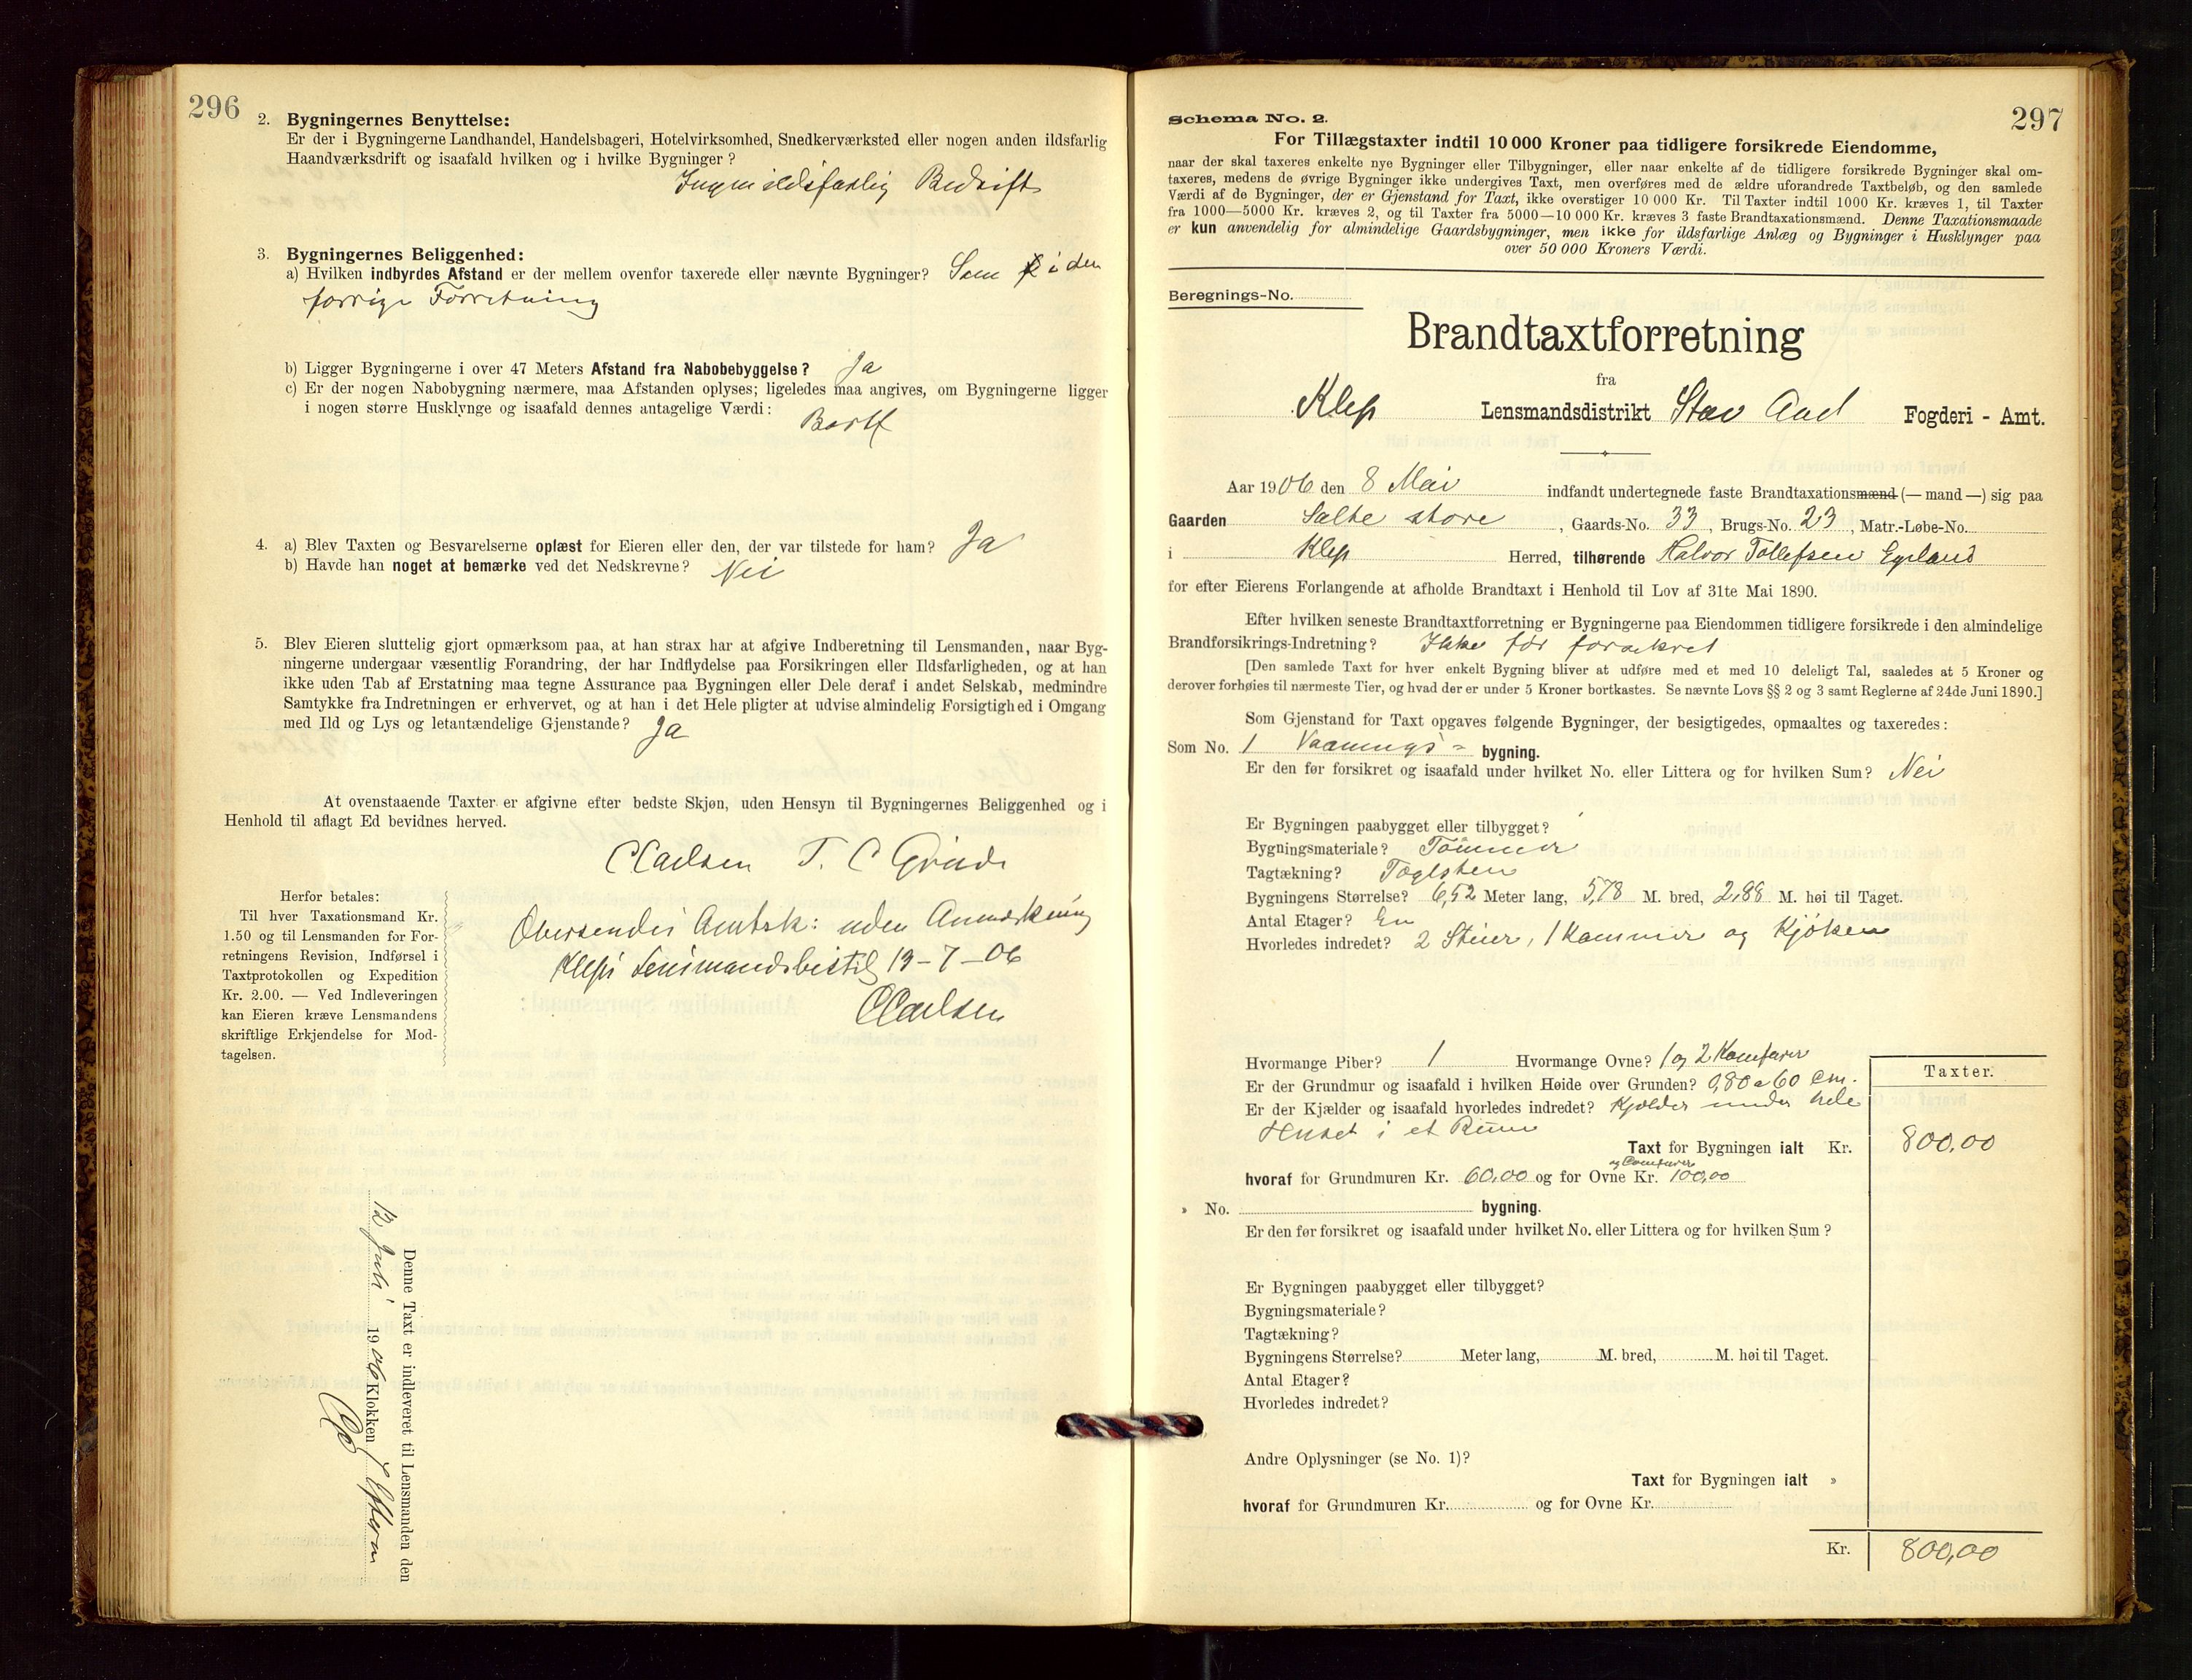 296
2. Bygningernes Benyttelse:
Er der i Bygningerne Landhandel, Handelsbageri, Hotelvirksomhed, Snedkerværksted eller nogen anden ildsfarlig
Haandværksdrift og isaafald hvilken og i hvilke Bygninger?
Ingen ildsfarlig Bedrift
3. Bygningernes Beliggenhed:
a) Hvilken indbyrdes Afstand er der mellem ovenfor taxerede eller nævnte Bygninger? Som i den
forrige Forretning
b) Ligger Bygningerne i over 47 Meters Afstand fra Nabobebyggelse? Ja
c) Er der nogen Nabobygning nærmere, maa Afstanden oplyses; ligeledes maa angives, om Bygningerne ligger
i nogen større Husklynge og isaafald dennes antagelige Værdi:
Bortf
4. a) Blev Taxten og Besvarelserne oplæst for Eieren eller den, der var tilstede for ham? Ja
b) Havde han noget at bemærke ved det Nedskrevne? Nei
5. Blev Eieren sluttelig gjort opmærksom paa, at han strax har at afgive Indberetning til Lensmanden, naar Byg-
ningerne undergaar væsentlig Forandring, der har Indflydelse paa Forsikringen eller Ildsfarligheden, og at han
ikke uden Tab af Erstatning maa tegne Assurance paa Bygningen eller Dele deraf i andet Selskab, medmindre
Samtykke fra Indretningen er erhvervet, og at han i det Hele pligter at udvise almindelig Forsigtighed i Omgang
med Ild og Lys og letantændelige Gjenstande? Ja
At ovenstaaende Taxter er afgivne efter bedste Skjøn, uden Hensyn til Bygningernes Beliggenhed og i
Henhold til aflagt Ed bevidnes herved.
CCarlsen T. C Grude
Herfor betales:
Til hver Taxationsmand Kr.
1.50 og til Lensmanden for For-
retningens Revision, Indførsel i
Taxtprotokollen og Expedition
Kr. 2.00. — Ved Indleveringen
kan Eieren kræve Lensmandens
skriftlige Erkjendelse for Mod-
tagelsen.
Oversendes Amtsk: uden Anmærkning
Klepi Lensmandsbestil 13-7-06
CCarlsen
Denne Taxt er indleveret til Lensmanden den
12 Juli 1906 Klokken
297
Schema No. 2.
For Tillægstaxter indtil 10 000 Kroner paa tidligere forsikrede Eiendomme,
naar der skal taxeres enkelte nye Bygninger eller Tilbygninger, eller naar enkelte af de tidligere forsikrede Bygninger skal om-
taxeres, medens de øvrige Bygninger ikke undergives Taxt, men overføres med de ældre uforandrede Taxtbeløb, og den samlede
Værdi af de Bygninger, der er Gjenstand for Taxt, ikke overstiger 10 000 Kr. Til Taxter indtil 1000 Kr. kræves 1, til Taxter
fra 1000—5000 Kr. kræves 2, og til Taxter fra 5000—10 000 Kr. kræves 3 faste Brandtaxationsmænd. Denne Taxationsmaade
er kun anvendelig for almindelige Gaardsbygninger, men ikke for ildsfarlige Anlæg og Bygninger i Husklynger paa
over 50 000 Kroners Værdi.
Beregnings-No.
Brandtaxtforretning
fra
Klep Lensmandsdistrikt Stav Amt Fogderi - Amt.
Aar 1906 den 8 Mai indfandt undertegnede faste Brandtaxationsmænd (— mand —) sig paa
Gaarden Salte store, Gaards-No. 33, Brugs-No. 23, Matr.-Løbe-No.
i Klep Herred, tilhørende Halvor Tollefsen Egeland
for efter Eierens Forlangende at afholde Brandtaxt i Henhold til Lov af 31te Mai 1890.
Efter hvilken seneste Brandtaxtforretning er Bygningerne paa Eiendommen tidligere forsikrede i den almindelige
Brandforsikrings-Indretning? Ikke før forsikret
[Den samlede Taxt for hver enkelt Bygning bliver at udføre med et med 10 deleligt Tal, saaledes at 5 Kroner og
derover forhøies til nærmeste Tier, og hvad der er under 5 Kroner bortkastes. Se nævnte Lovs §§ 2 og 3 samt Reglerne af 24de Juni 1890.]
Som Gjenstand for Taxt opgaves følgende Bygninger, der besigtigedes, opmaaltes og taxeredes:
Som No. 1 Vaanings- bygning.
Er den før forsikret og isaafald under hvilket No. eller Littera og for hvilken Sum? Nei
Er Bygningen paabygget eller tilbygget?
Bygningsmateriale? Tømmer
Tagtækning? Taglsten
Bygningens Størrelse? 6,52 Meter lang, 5,78 M. bred, 2,88 M. høi til Taget.
Antal Etager? En
Hvorledes indredet? 2 Stuer, 1 Kammer og Kjøken
Hvormange Piber? 1 Hvormange Ovne? 1 og 2 Komfurer
Er der Grundmur og isaafald i hvilken Høide over Grunden? 0,80 a 60 cm.
Er der Kjælder og isaafald hvorledes indredet? Kjælder under hele
Huset i et Rum
Taxter.
Taxt for Bygningen ialt Kr. 800,00
og Comfurer
hvoraf for Grundmuren Kr. 60,00 og for Ovne Kr. 100,00
» No. bygning.
Er den før forsikret og isaafald under hvilket No. eller Littera og for hvilken Sum?
Er Bygningen paabygget eller tilbygget?
Bygningsmateriale?
Tagtækning?
Bygningens Størrelse? Meter lang, M. bred, M. høi til Taget.
Antal Etager?
Hvorledes indredet?
Andre Oplysninger (se No. 1)?
Taxt for Bygningen ialt »
hvoraf for Grundmuren Kr. og for Ovne Kr.
Kr. 800,00